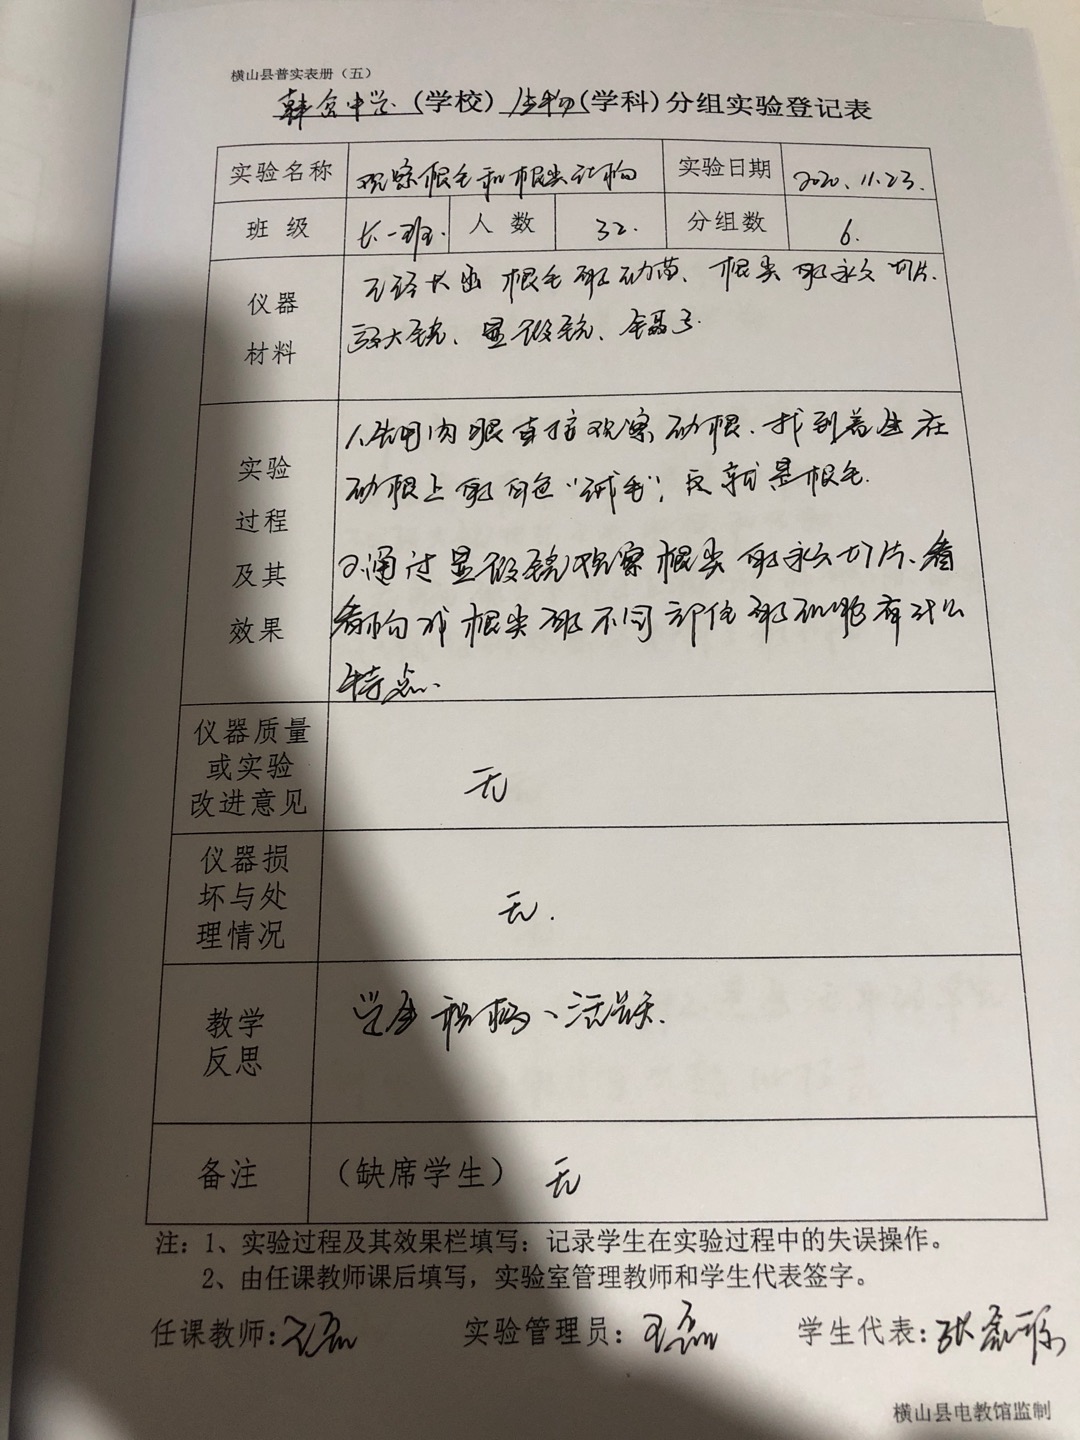 横山县普实表册（五）
韩岔中学（学校）生物（学科）分组实验登记表
实验名称 观察根毛和根尖结构 实验日期 2020.11.23.
班 级 七一班. 人 数 32. 分组数 6.
已经长出根毛的幼苗、根尖的永久切片.
仪器
放大镜、显微镜、镊子.
材料
1.先用肉眼直接观察幼根.找到着生在
实验
幼根上的白色“绒毛”，这就是根毛.
过程
2.通过显微镜观察根尖的永久切片、看
及其
看构成根尖的不同部位的细胞有什么
效果
特点.
仪器质量
或实验
改进意见
无
仪器损
坏与处
理情况
无.
教学
反思
学生积极、活跃.
备注 （缺席学生） 无
注：1、实验过程及其效果栏填写：记录学生在实验过程中的失误操作。
2、由任课教师课后填写，实验室管理教师和学生代表签字。
任课教师：王磊 实验管理员：王磊 学生代表：张
横山县电教馆监制